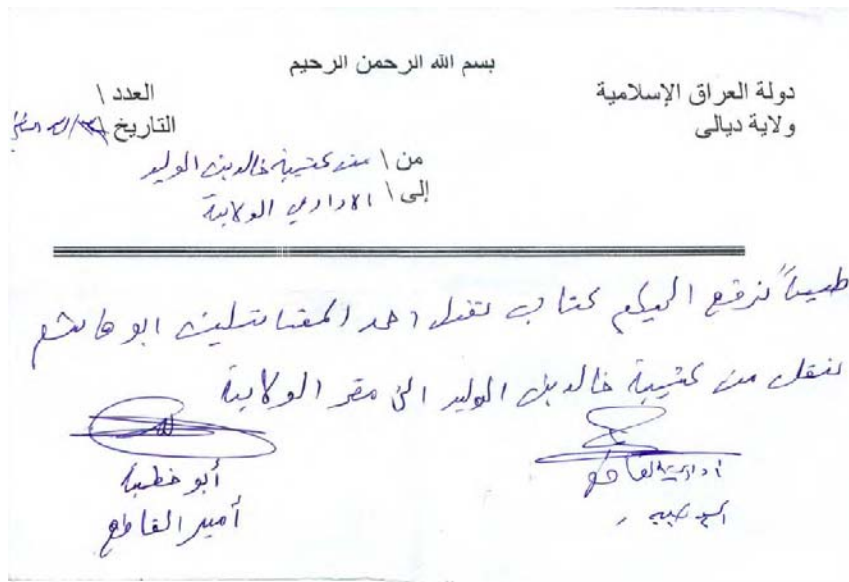 بسم الله الرحمن الرحيم
دولة العراق الإسلامية
ولاية ديالى
العدد \
التاريخ \
من \ من كتيبة خالد بن الوليد
إلى \ الاداري الولاية
طيباً نرفع اليكم كتاب نقل احد المقاتلين ابو هاشم
ننقل من كتيبة خالد بن الوليد الى مقر الولاية
القاطع
أبو
أمير القاطع